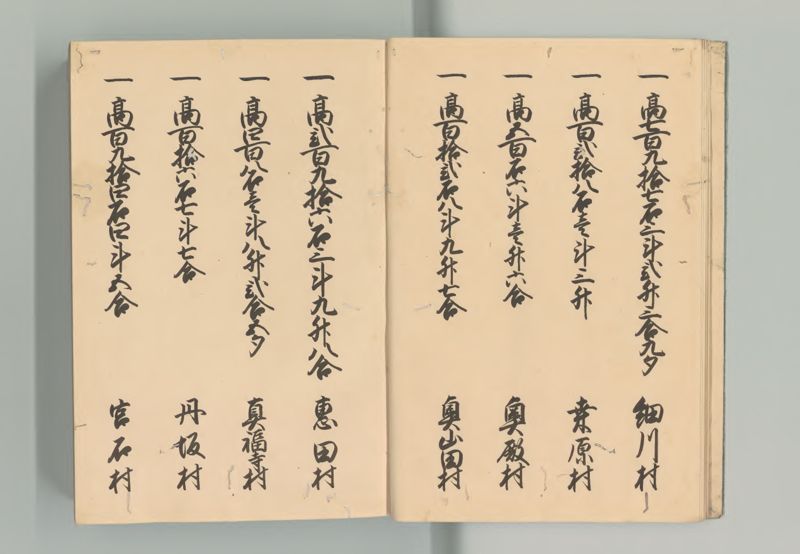 一高七百九拾七石三斗弐升三合九夕 細川村
一高百弐拾八石壱斗三升 桒原村
一高五百石六斗壱升六合 奥殿村
一高百拾弐石八斗九升七合 奥山田村
一高弐百九拾六石三斗九升八合 恵田村
一高四百八石壱斗八升弐合五夕 真福寺村
一高百拾六石七斗七合 丹坂村
一高百九拾四石四斗五合 宮石村